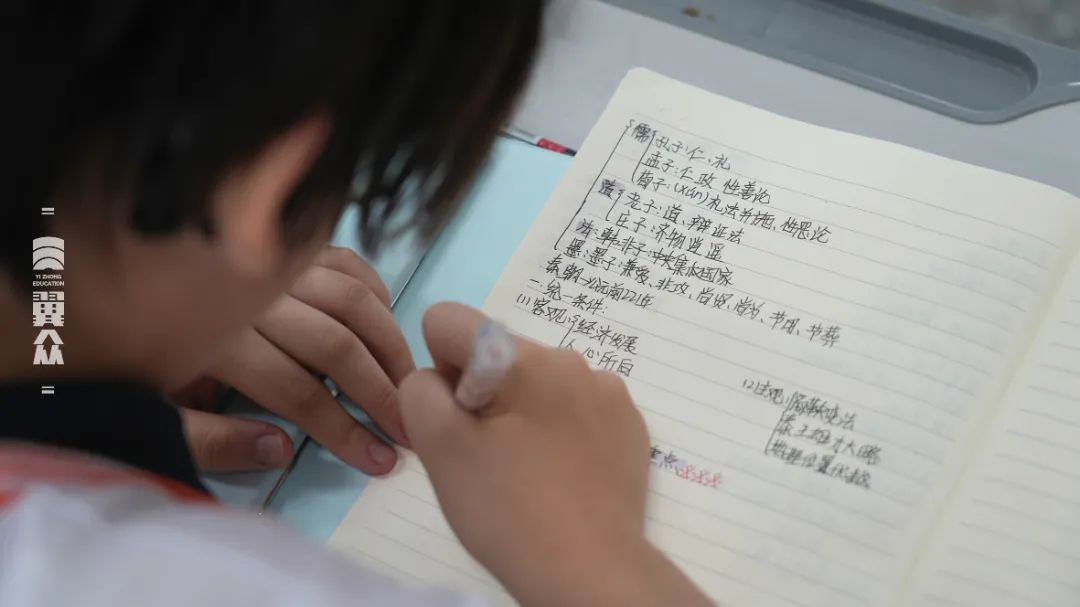 YI ZHONG
EDUCATION
翼
众
儒 孔子:仁、礼
孟子:仁政 性善论
荀子:(xún)礼法并施、性恶论
道 老子:道、辩证法
庄子:齐物 逍遥
法:韩非子:中央集权国家
墨:墨子:兼爱、非攻、尚贤、尚力、节用、节葬
秦朝-公元前221年
一.统一条件:
(1)客观:经济发展
人心所向
(2)主观:商鞅变法
秦王雄才大略
地理位置优越
重点